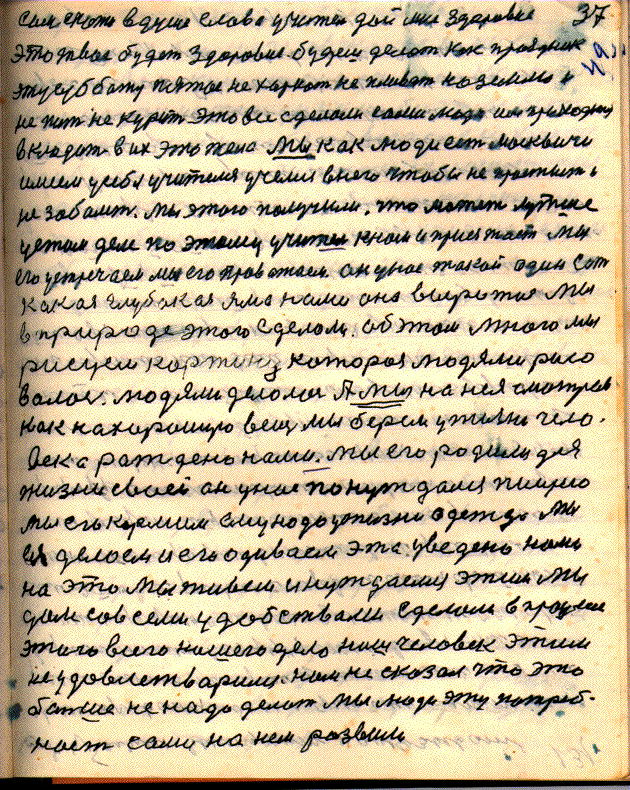 сам скажи в душе слова учитель дай мне здоровие 37
это твое будет здоровие будеш делат как праздник
эту суббату пятае не харкат не плеват на землю и
не пит не курит это все сделали сами люди им приходится
в кладат в их это тела Мы как люди ест москвичи
имеем у себя учителя учемся в него чтобы не простыт и
не забалит. мы этого получили, что может лутше
у этом деле по этому учител к нам и приезжает Мы
его устречаем мы его праважаем он у нас такой один Сам
какая глубокая яма нами она вырота Мы
в природе этого сделали. об этом много мы
рисуем картину которая людями рисо
валас. людями делалас А мы на нея смотрим
как на хорошую вещ мы берем у жизни чело.
века раждено нами. мы его родили для
жизни своей он у нас понуждался пищию
мы его кормим ему надо у жизни одежда Мы
ея делаем и его одиваем эта уведено нами
на это мы живем и нуждаемся этим Мы
дом со всеми удобствами сделали в
этого всего нашего дело наш человек этим
не удовлетварился. нам не сказал что это
батше не надо делат мы люди эту потреб-
ност сами на нем развили